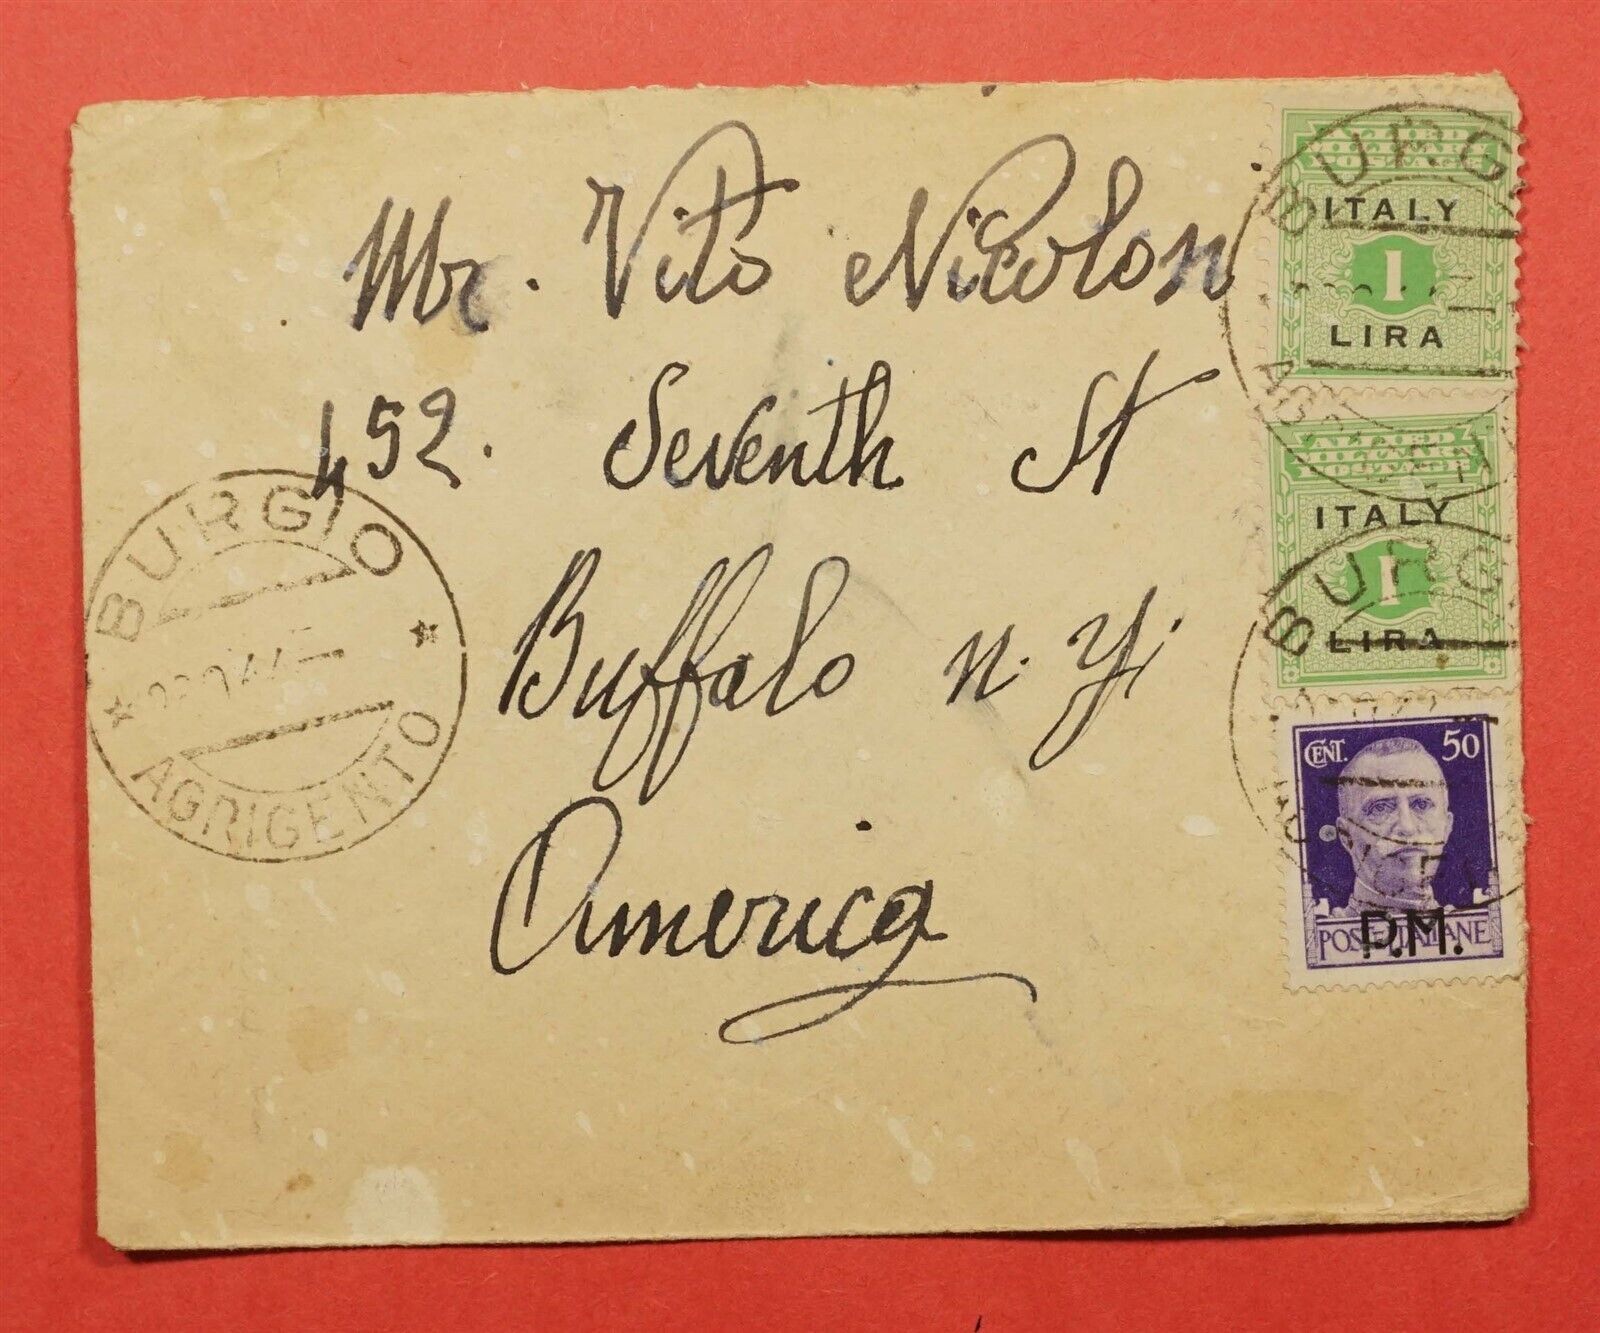 Mr. Vito Nicolosi
452. Seventh St
Buffalo n. y.
America
BURGIO
AGRIGENTO
ALLIED
MILITARY
POSTAGE
ITALY
1
LIRA
BURG
ALLIED
MILITARY
POSTAGE
ITALY
1
LIRA
BURG
CENT. 50
P.M.
POSTE ITALIANE